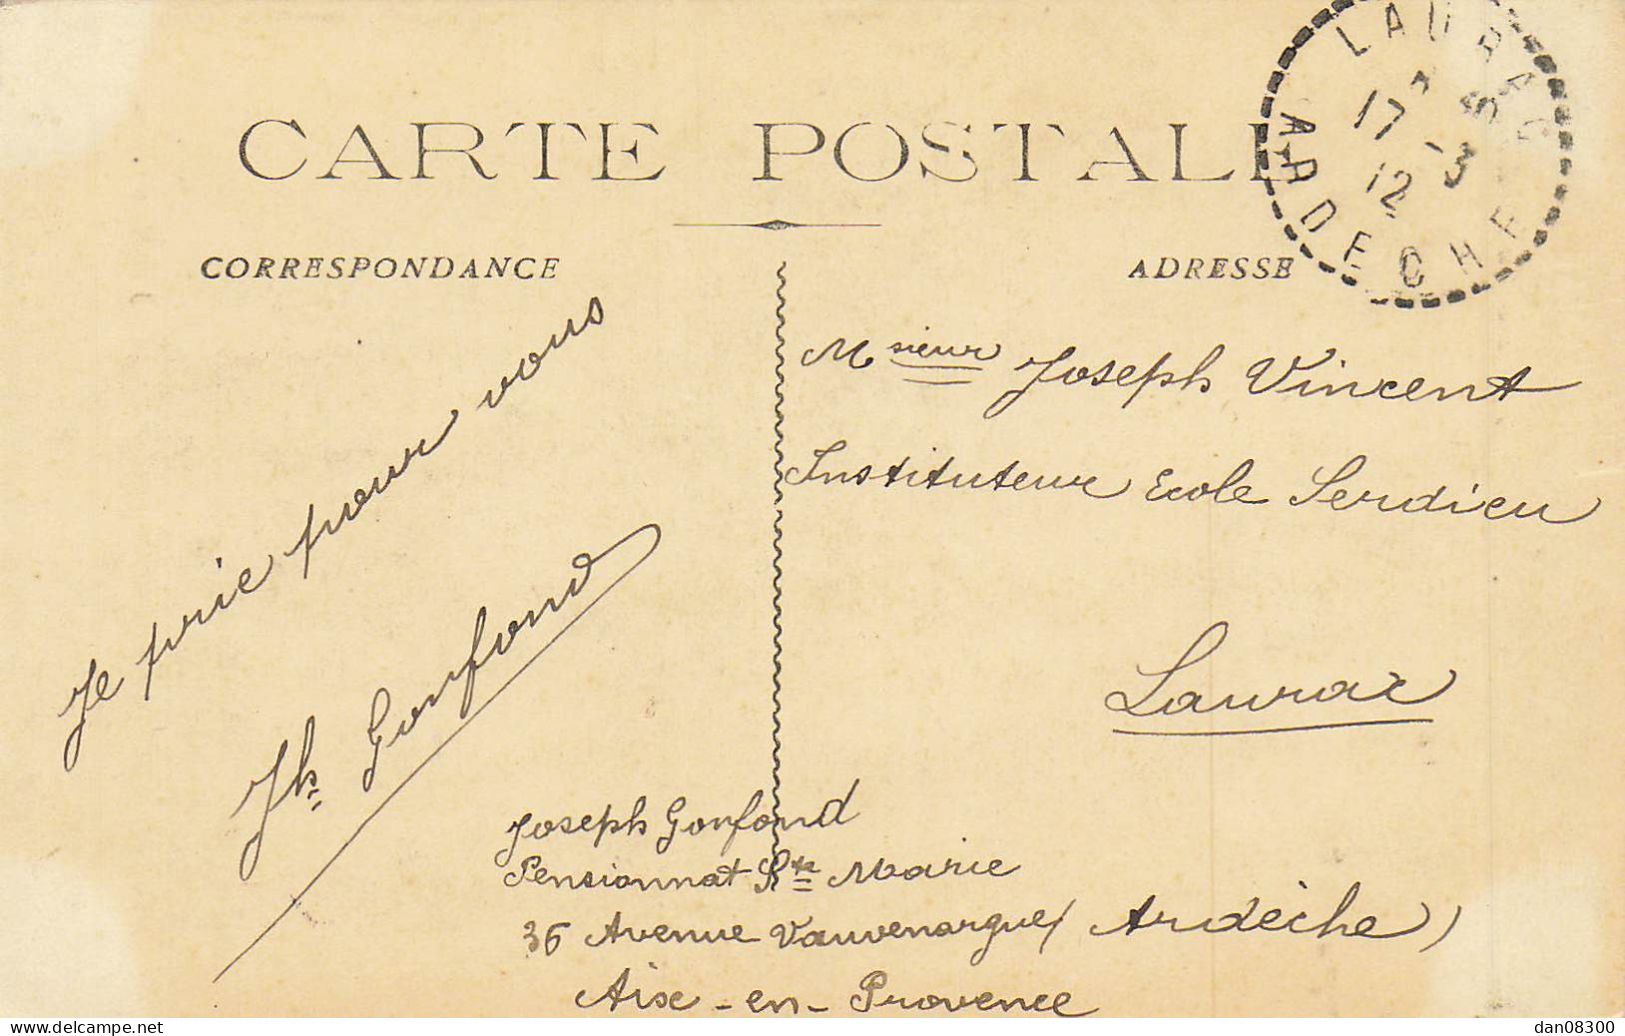 CARTE POSTALE
CORRESPONDANCE
ADRESSE
LAURAC
17
5
12 -3
ARDECHE
Je prie pour vous
Jh Gonfond
Msieur Joseph Vincent
Instituteur Ecole Serdieu
Laurac
(Ardèche)
Joseph Gonfond
Pensionnat Ste Marie
36 Avenue Vauvenargue
Aix-en-Provence
dan08300